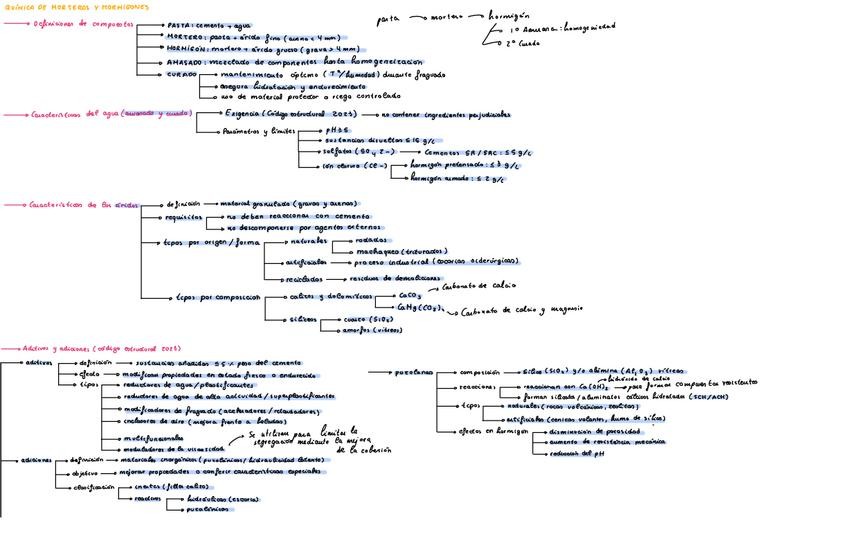 QUÍMICA DE MORTEROS Y HORMIGONES
Definiciones de compuestos
PASTA: cemento + agua
MORTERO: pasta + árido fino (arena < 4 mm)
HORMIGÓN: mortero + árido grueso (grava > 4 mm)
AMASADO: mezclado de componentes hasta homogeneización
CURADO
mantenimiento óptimo (Tª/humedad) durante fraguado
asegura hidratación y endurecimiento
uso de material protector o riego controlado
pasta → mortero → hormigón
1º Amasar: homogeneidad
2º Curado
Características del agua (amasado y curado)
Exigencia (Código estructural 2021) → no contener ingredientes perjudiciales
Parámetros y límites
pH ≥ 5
sustancias disueltas ≤ 15 g/L
sulfatos (SO4 2-) → Cementos SR/SRC: ≤ 5 g/L
ión cloruro (Cl-)
hormigón pretensado: ≤ 1 g/L
hormigón armado: ≤ 2 g/L
Características de los áridos
definición → material granulado (gravas y arenas)
requisitos
no deben reaccionar con cemento
no descomponerse por agentes externos
tipos por origen/forma
naturales
rodados
machaqueo (triturados)
artificiales → proceso industrial (escorias siderúrgicas)
reciclados → residuos de demoliciones
tipos por composición
calizos y dolomíticos
CaCO3
Carbonato de calcio
CaMg(CO3)2
Carbonato de calcio y magnesio
silíceos
cuarzo (SiO2)
amorfos (vítreos)
Aditivos y adiciones (código estructural 2021)
aditivos
definición → sustancias añadidas ≤ 5 % peso del cemento
efecto → modifican propiedades en estado fresco o endurecido
tipos
reductores de agua/plastificantes
reductores de agua de alta actividad/superplastificantes
modificadores de fraguado (aceleradores/retardadores)
inclusores de aire (mejora frente a heladas)
multifuncionales
moduladores de la viscosidad
Se utilizan para limitar la
segregación mediante la mejora
de la cohesión
adiciones
definición → materiales inorgánicos (puzolánicos/hidraulicidad latente)
objetivo → mejorar propiedades o conferir características especiales
clasificación
inertes (filler calizo)
reactivas
hidráulicas (escoria)
puzolánicas
puzolanas
composición → sílice (SiO2) y/o alúmina (Al2O3) vítreas
reacciones
hidróxido de calcio
reaccionan con Ca(OH)2 → para formar compuestos resistentes
forman silicato/aluminatos cálcicos hidratados (SCH/ACH)
tipos
naturales (rocas volcánicas, zeolitas)
artificiales (cenizas volantes, humo de sílice)
efectos en hormigón
disminución de porosidad
aumento de resistencia mecánica
reducción del pH